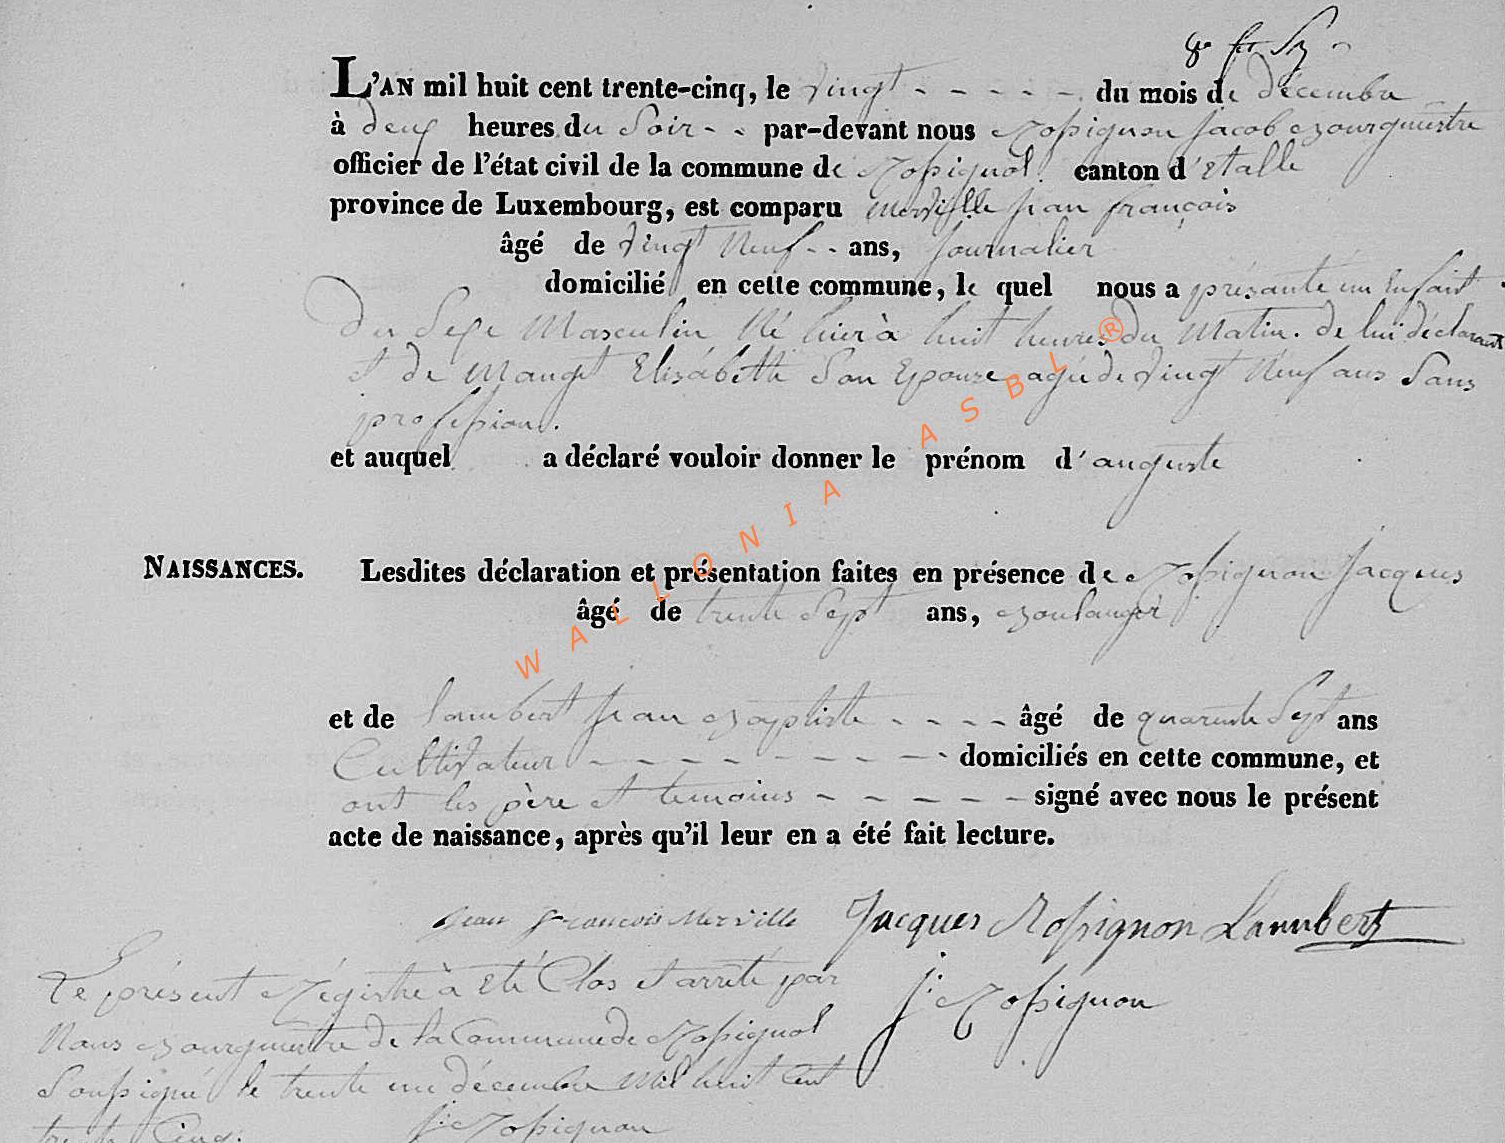 L'AN mil huit cent trente-cinq, le vingt - - - - - du mois de décembre
à deux heures du Soir - - par-devant nous Rossignon Jacob Bourgmestre
officier de l'état civil de la commune de Rossignol canton d'Etalle
province de Luxembourg, est comparu Merville jean françois
âgé de vingt Neuf - - ans, journalier
domicilié en cette commune, le quel nous a présanté un Enfant
Du Sexe Masculin Né hier à huit heures du Matin. de lui déclarant
et de Manget Elisábeth Son Epouse agée de vingt Neuf ans Sans
profession.
et auquel a déclaré vouloir donner le prénom d'auguste
NAISSANCES. Lesdites déclaration et présentation faites en présence de Rossignon Jacques
âgé de trente Sept ans, Boulanger
et de Lambert Jean Baptiste - - - - âgé de quarente Sept ans
Cultivateur - - - - - - - - - domiciliés en cette commune, et
ont les père et temoins - - - - - signé avec nous le présent
acte de naissance, après qu'il leur en a été fait lecture.
Jean Francois Merville Jacques Rossignon Lambert
Le présent Régistre à Eté Clos et arrêté par
Nous Bourgmestre de la Commune de Rossignol
J. Rossignon
Soussigné le trente un décembre Mil huit Cent
trente Cinq. J. Rossignon
WALLONIA ASBL ®